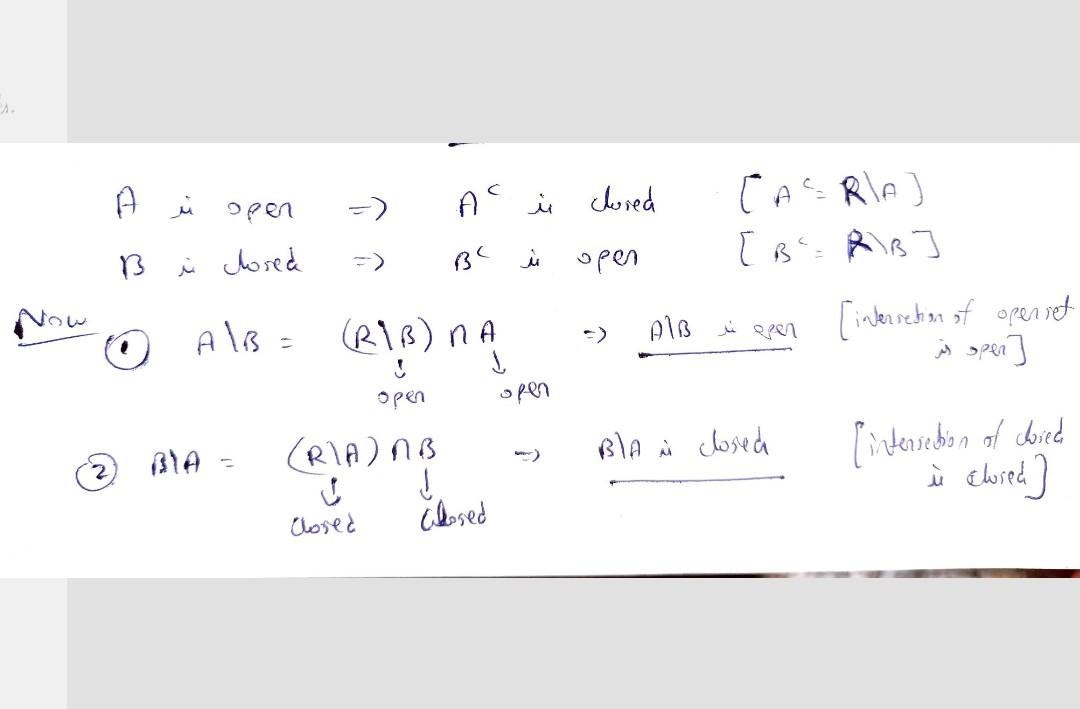 A is open => Aᶜ is closed [Aᶜ = R\A]
B is closed => Bᶜ is open [Bᶜ = R\B]
Now
① A\B = (R\B) ∩ A => A\B is open [intersection of open set
is open]
↓ ↓
open open
② B\A = (R\A) ∩ B => B\A is closed [intersection of closed
is closed]
↓ ↓
closed closed